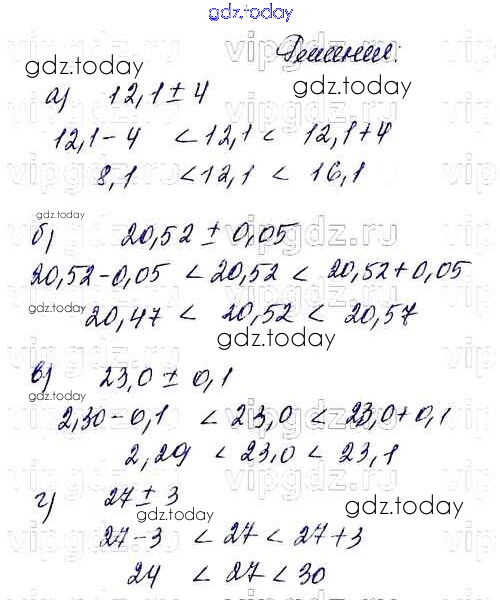 gdz.today
Решения:
gdz.today
а) 12,1 ± 4
12,1 - 4 < 12,1 < 12,1 + 4
8,1 < 12,1 < 16,1
vipgdz.ru
gdz.today
б) 20,52 ± 0,05
20,52 - 0,05 < 20,52 < 20,52 + 0,05
gdz.today
20,47 < 20,52 < 20,57
gdz.today
в) 23,0 ± 0,1
gdz.today
2,30 - 0,1 < 23,0 < 23,0 + 0,1
2,29 < 23,0 < 23,1
г) 27 ± 3
gdz.today
gdz.today
27 - 3 < 27 < 27 + 3
24 < 27 < 30